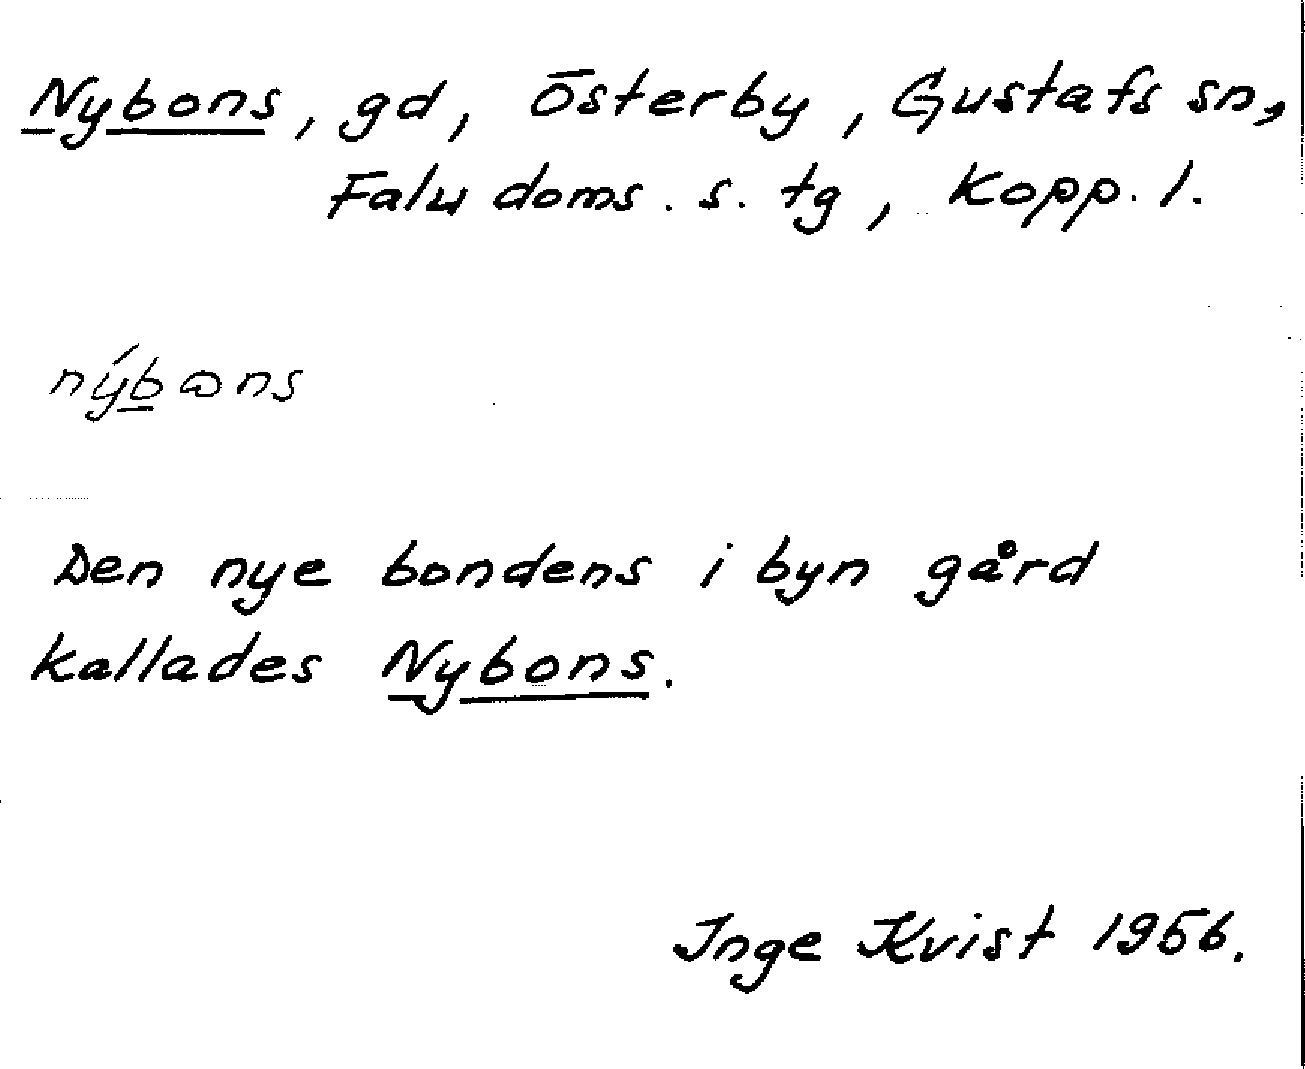 Nybons, gd, Österby, Gustafs sn,
Falu doms. s. tg, Kopp. l.
nýbωns
Den nye bondens i byn gård
kallades Nybons.
Inge Kvist 1956.